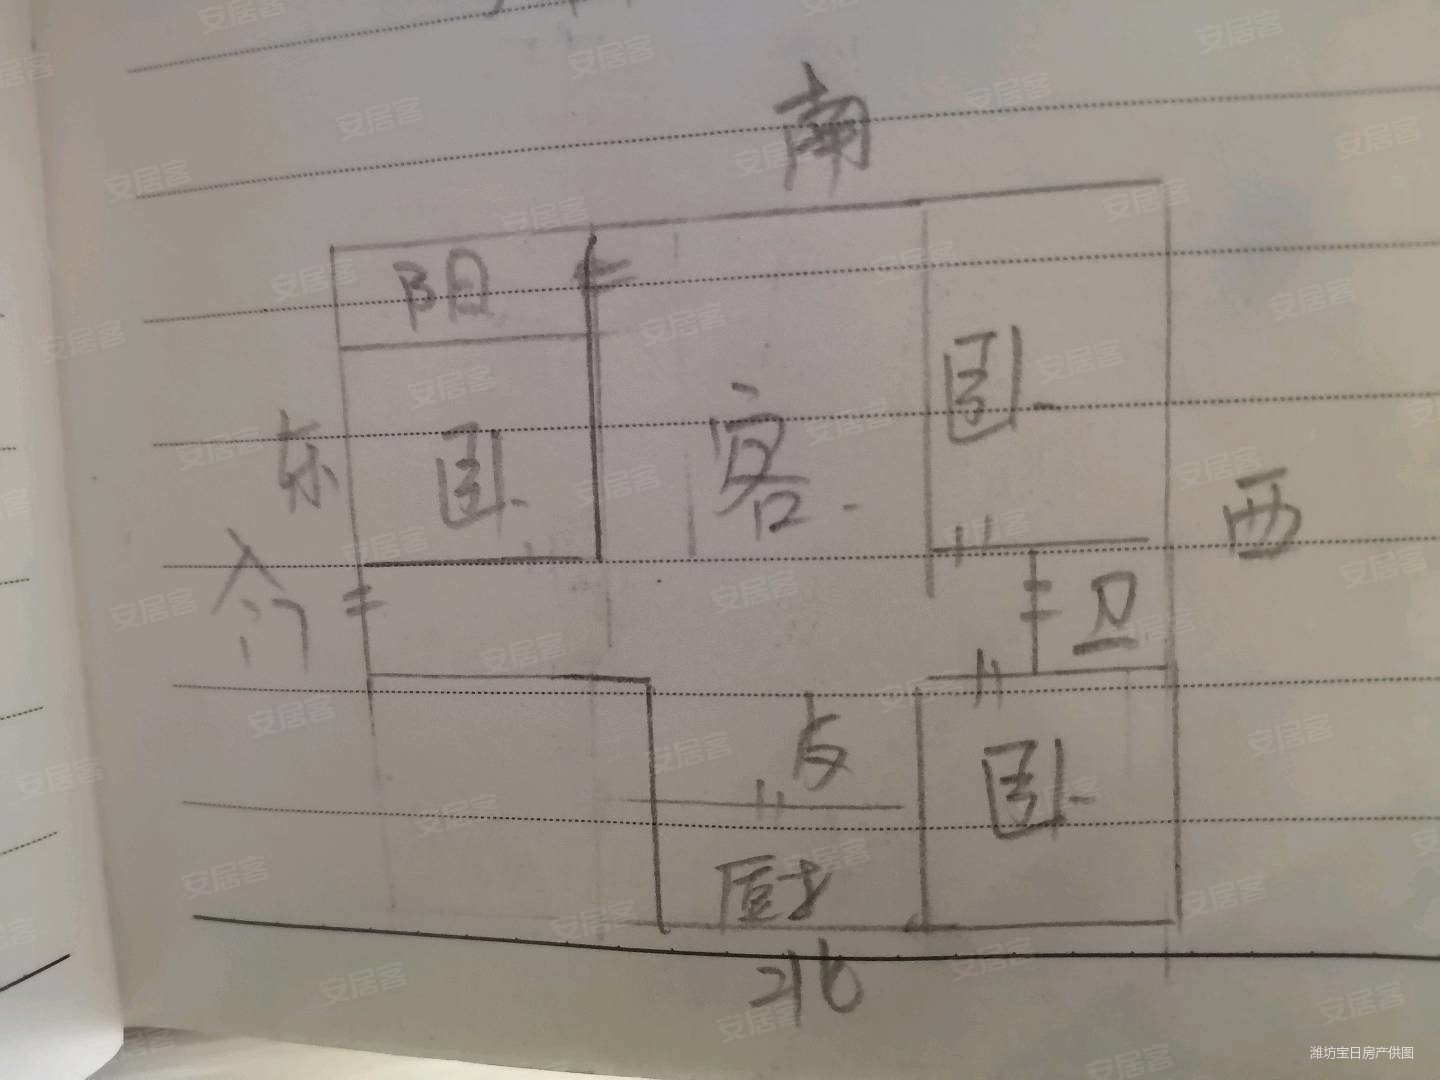 南
阳
卧
客
卧
东
西
入
门
卫
卧
厨
北
安居客
潍坊宝日房产供图